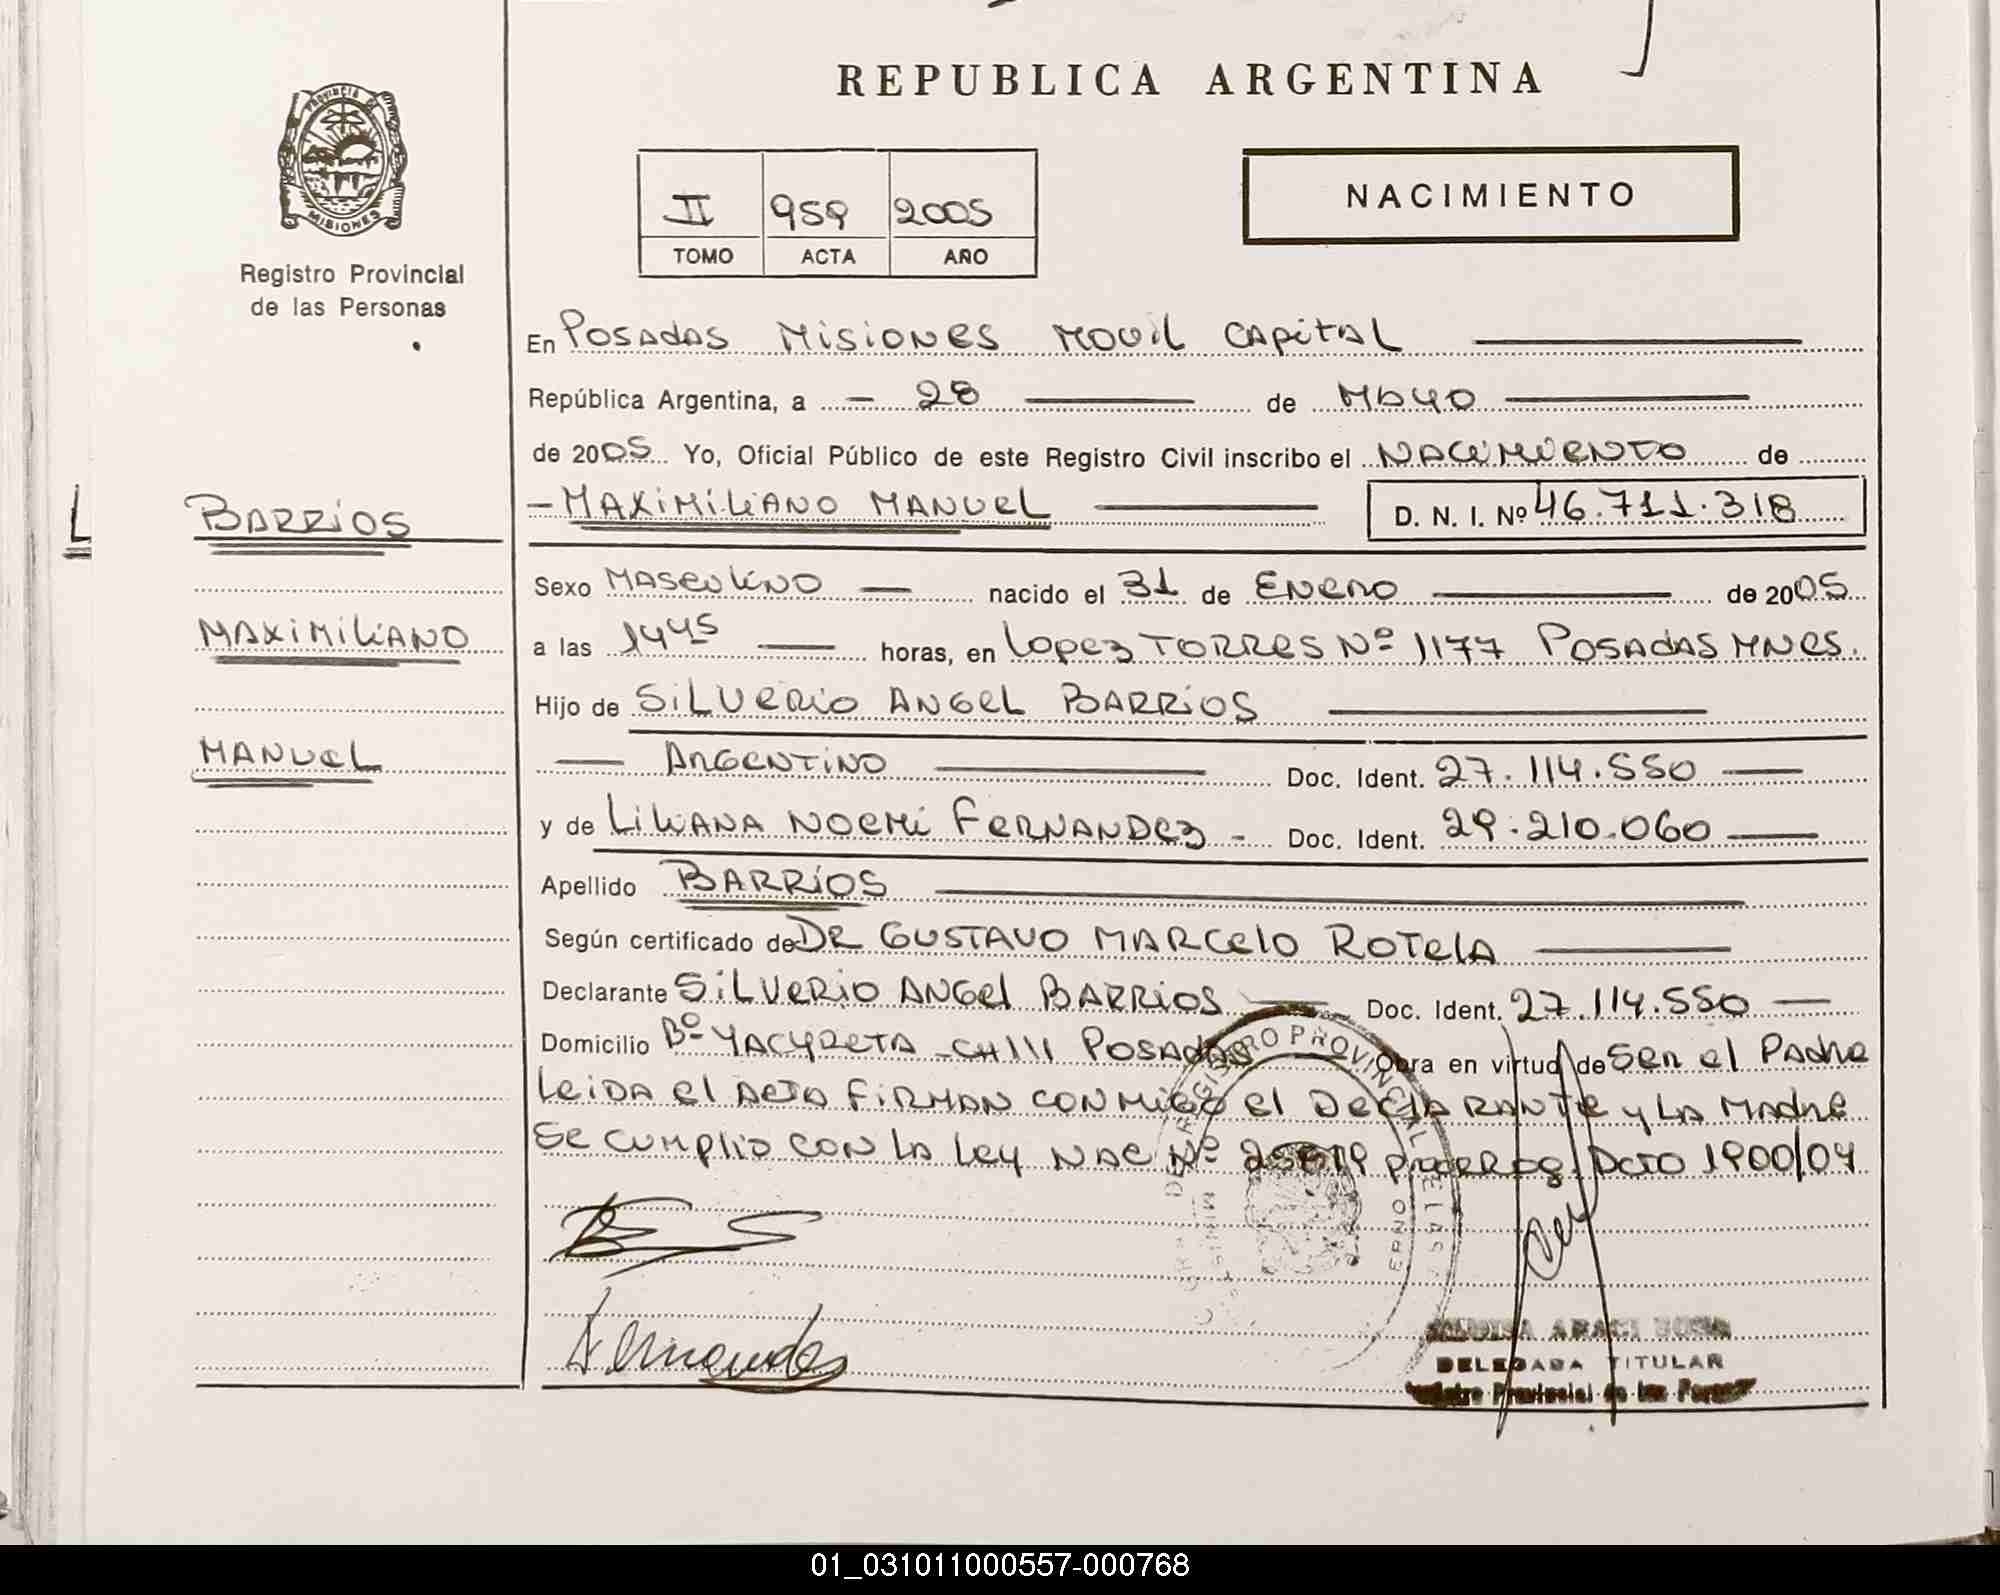 REPUBLICA ARGENTINA
PROVINCIA DE
MISIONES
Registro Provincial
de las Personas
II 959 2005
TOMO ACTA AÑO
NACIMIENTO
En POSADAS MISIONES MOVIL CAPITAL
República Argentina, a - 28 de MAYO
de 2005 Yo, Oficial Público de este Registro Civil inscribo el NACIMIENTO de
- MAXIMILIANO MANUEL D. N. I. Nº 46.711.318
L
BARRIOS
MAXIMILIANO
MANUEL
Sexo MASCULINO nacido el 31 de ENERO de 2005
a las 1445 horas, en LOPEZ TORRES Nº 1177 POSADAS MNES.
Hijo de SILVERIO ANGEL BARRIOS
ARGENTINO Doc. Ident. 27.114.550
y de LILIANA NOEMI FERNANDEZ - Doc. Ident. 29.210.060
Apellido BARRIOS
Según certificado de DR GUSTAVO MARCELO ROTELA
Declarante SILVERIO ANGEL BARRIOS Doc. Ident. 27.114.550
Domicilio Bº YACYRETA - CH 111 POSADAS Obra en virtud de SER EL PADRE
LEIDA EL ACTA FIRMAN CONMIGO EL DECLARANTE Y LA MADRE
SE CUMPLIO CON LA LEY NAC Nº DCTO 1900/04
REGISTRO PROVINCIAL DE LAS
Fernandez
DELEGADA TITULAR
Registro Provincial de las Personas
01_031011000557-000768